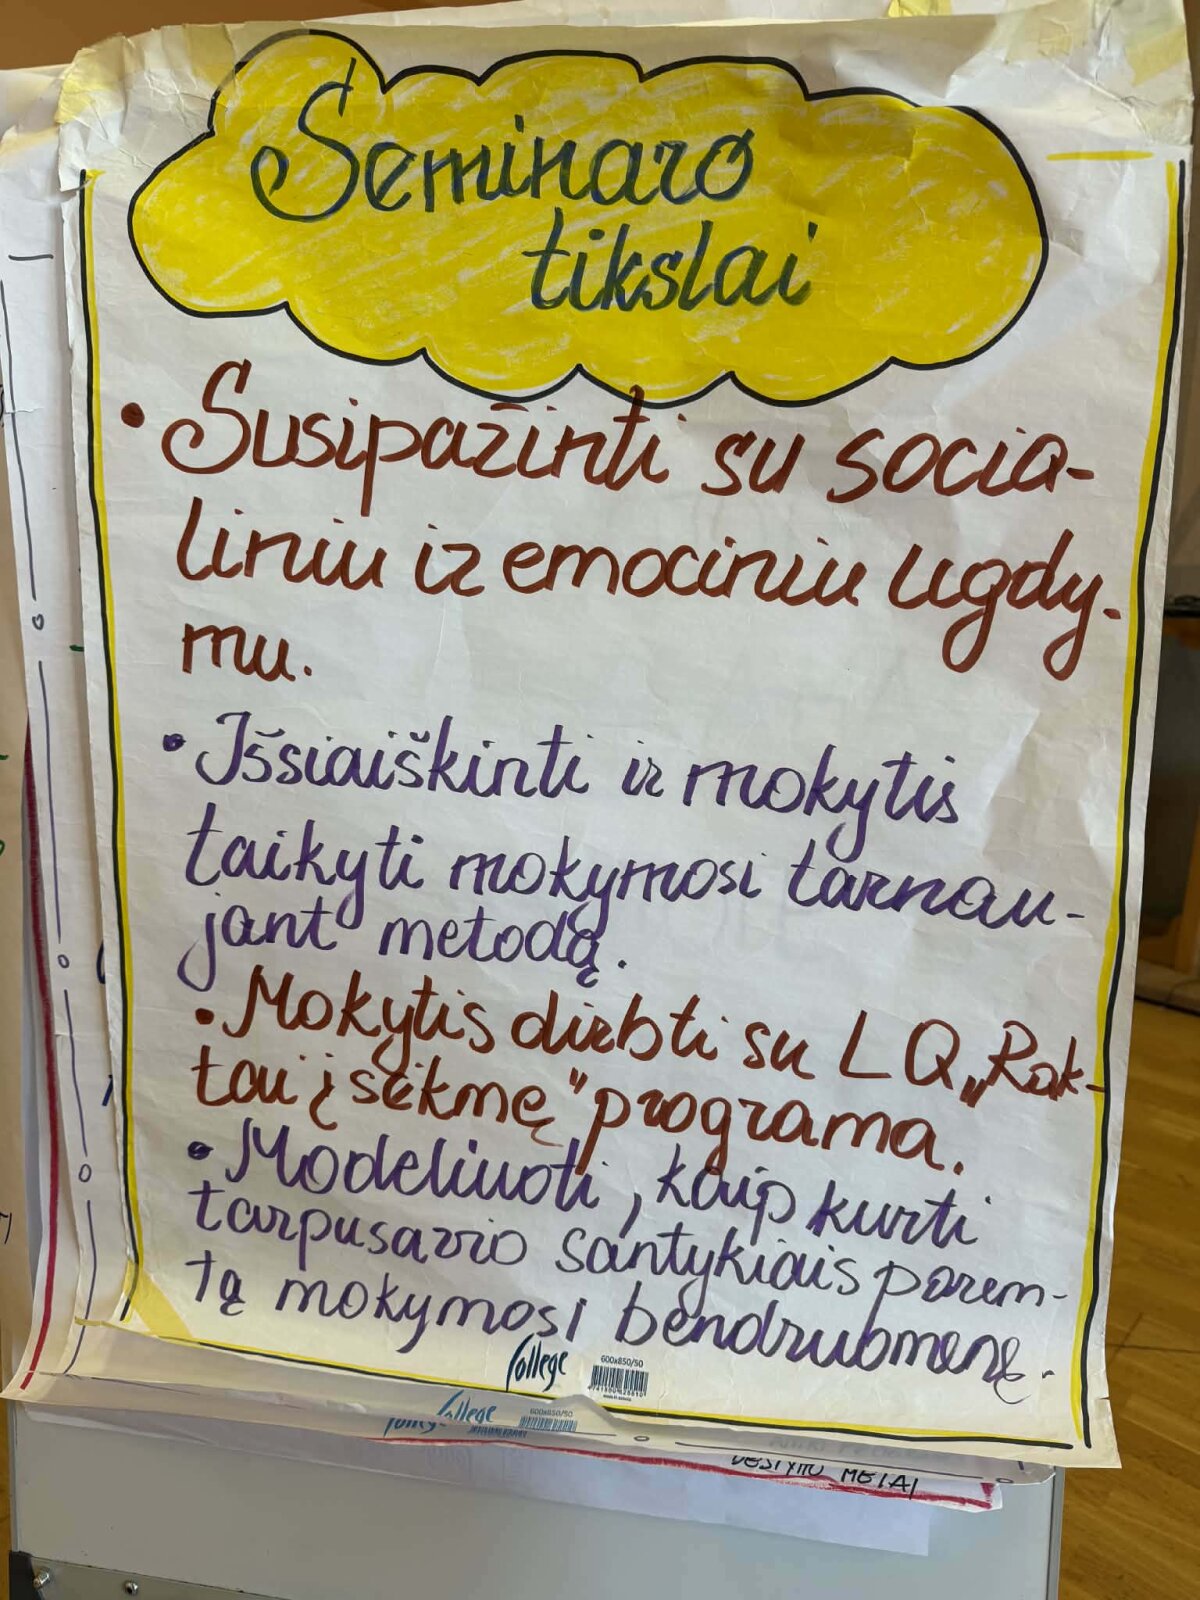 Seminaro
tikslai
• Susipažinti su socia-
liniu ir emociniu ugdy-
mu.
• Išsiaiškinti ir mokytis
taikyti mokymosi tarnau-
jant metodą.
• Mokytis dirbti su LQ „Rak-
tai į sėkmę" programa.
• Modeliuoti, kaip kurti
tarpusavio santykiais parem-
tą mokymosi bendruomenę.
College
600x850/50
College
600x850/50
METAI